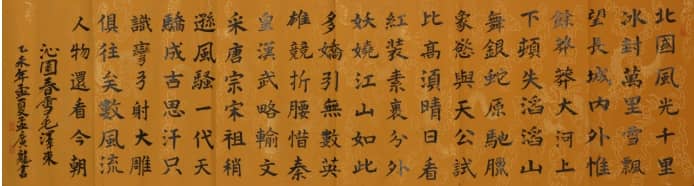 北國風光千里
冰封萬里雪飄
望長城內外惟
餘莽莽大河上
下頓失滔滔山
舞銀蛇原馳臘
象慾與天公試
比高湏晴日看
紅裝素裹分外
妖嬈江山如此
多嬌引無數英
雄競折腰惜秦
皇漢武略輸文
采唐宗宋祖稍
遜風騷一代天
驕成古思汗只
識彎弓射大雕
俱往矣數風流
人物還看今朝
沁園春雪毛澤東
乙未年孟夏孟廣龍書